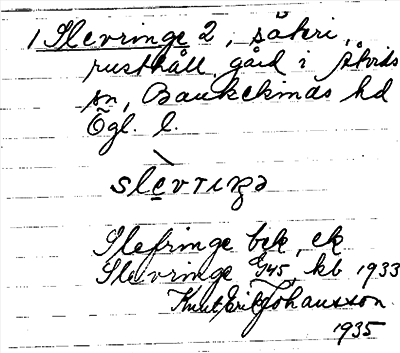 1 Slevringe 2, säteri,
rusthåll gård i Åtvids
sn, Bankekinds hd
Ögl. l.
slèvrıŋə
Slefringe bek, ek
Slevringe G45, kb 1933
Knut Erik Johansson
1935